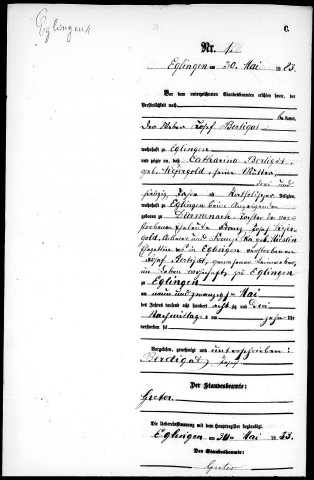 Eglingen
C.
Nr. 1.
Eglingen am 30. Mai 1883.
Vor dem unterzeichneten Standesbeamten erschien heute, der
Persönlichkeit nach
bekannt,
der Weber Josef Bertigat
wohnhaft zu Eglingen
und zeigte an, daß Catharina Bertigat,
geb. seine Mutter,
drei und
siebzig Jahre alt, katholischer Religion,
wohnhaft zu Eglingen beim Anzeigenden
geboren zu Dürmenach, Tochter der ver-
storbenen Eheleute Franz Josef
und
in Eglingen verstorbenen
Josef Bertigat,
im Leben wohnhaft zu Eglingen
zu Eglingen
am neun und zwanzigsten Mai
des Jahres tausend acht hundert achtzig und drei
Nachmittags um zehn Uhr
verstorben sei
Vorgelesen, genehmigt und unterschrieben:
Berdigat Josef
Der Standesbeamte:
Greter.
Die Uebereinstimmung mit dem Hauptregister beglaubigt.
Eglingen am 30. Mai 1883.
Der Standesbeamte:
Greter